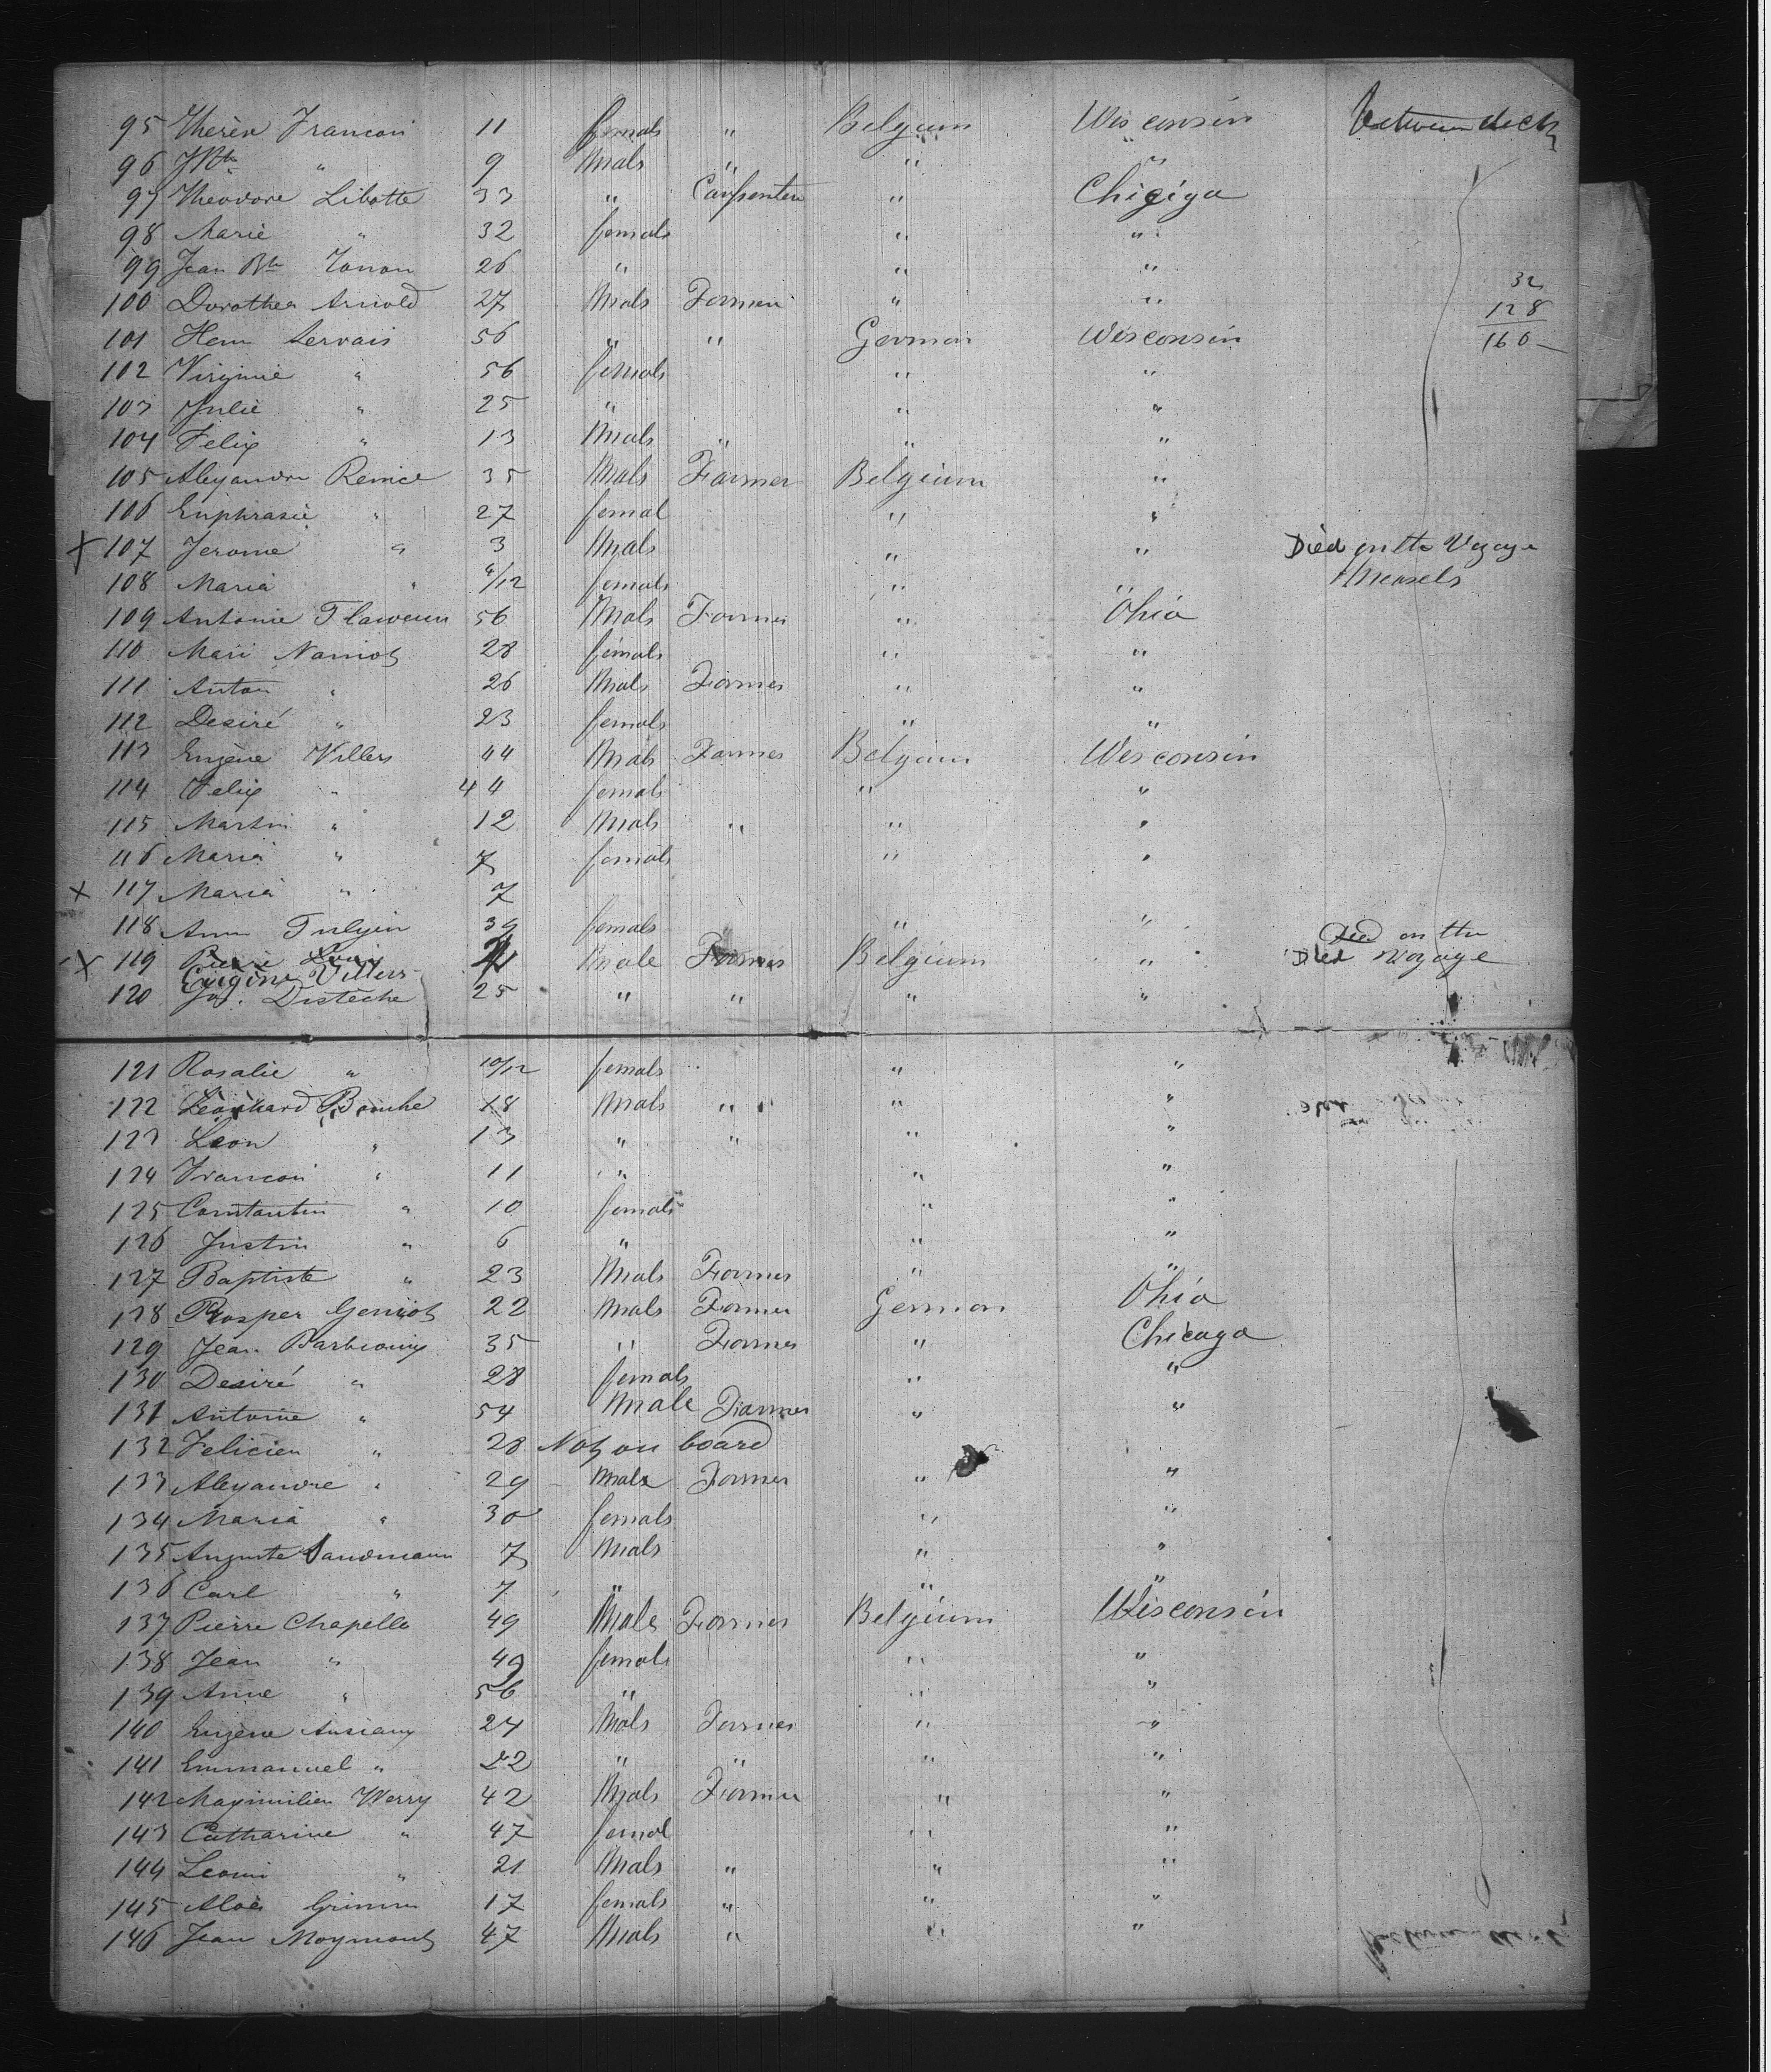 95 Therèn Francoi 11 femals " Belgium Wisconsin between deck
96 J Bte " 9 Mals " " "
97 Theodore Libotte 33 " Carpenter " Chigiga
98 Marie " 32 femals " "
99 Jean Bte Tonon 26 " " "
100 Dorothea Arnold 27 Mals Farmer " "
32
128
160
101 Henr Servais 56 " " German Wisconsin
102 Virginie " 56 femals " "
103 Julie " 25 " " "
104 Felix " 13 Mals " " "
105 Alexandre Renice 35 Mals Farmer Belgium "
106 Euphrasie " 27 femal " "
X 107 Jerome " 3 Mals " " Died on the Voyage
108 Maria " 4/12 femals " " Measels
109 Antonie Flaweun 56 Mals Farmer " Ohio
110 Mari Namiot 28 femals " "
111 Anton " 26 Mals Farmer " "
112 Desiré " 23 femals " "
113 Eugène Villers 44 Mals Farmer Belgium Wisconsin
114 Felix " 44 femals " "
115 Martin " 12 Mals " " "
116 Maria " 7 femals " "
X 117 Maria " 7
118 Ann Tulyin 39 femals " " Died on the
X 119 Pierre Louis Male Farmer Belgium " Died Voyage
Eugène Villers
120 Jos. Distèche 25 " " " "
121 Rosalie " 10/12 femals " "
122 Leonhard Bouche 18 Mals " " "
123 Leon " 13 " " " "
124 Francoi " 11 " " "
125 Constantin " 10 femals " "
126 Justin " 6 " " "
127 Baptiste " 23 Mals Farmer " "
128 Prosper Geniot 22 Mals Farmer German Ohio
129 Jean Barbeaux 35 " Farmer " Chicago
130 Desiré " 28 femals " "
131 Antoine " 54 Male Farmer " "
132 Felicien " 28 Not on board
133 Alexandre " 29 Male Farmer " "
134 Maria " 30 femals " "
135 Auguste Sandmann 7 Mals " "
136 Carl " 7 " " "
137 Pierre Chapelle 49 Male Farmer Belgium Wisconsin
138 Jean " 49 femals " "
139 Anne " 56 " " "
140 Eugène Ansiaux 24 Mals Farmer " "
141 Emmanuel " 22 " " " "
142 Maximilien Werry 42 Mals Farmer " "
143 Catharine " 47 femal " "
144 Leoni " 21 Mals " " "
145 Aloès Grimm 17 femals " " "
146 Jean Moymont 47 Mals " " "